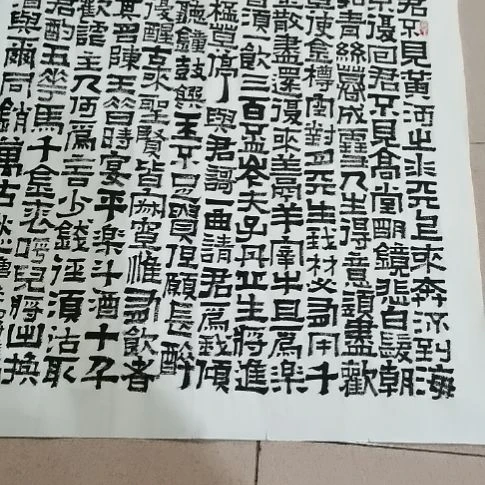 君不見黃河之水天上來奔流到海
不復回君不見高堂明鏡悲白髮朝
如青絲暮成雪人生得意須盡歡
莫使金樽空對月天生我材必有用千
金散盡還復來羊宰牛且為樂
會須一飲三百盃岑夫子丹丘生將進
停與君歌一曲請君為我傾
聽鐘鼓饌玉不足貴但願長醉
復醒古來聖賢皆寂寞惟有飲者
其名陳王昔時宴平樂斗酒十千
歡謔主人何為言少錢徑須沽取
君酌五花馬千金裘呼兒將出換
酒與爾同銷萬古愁